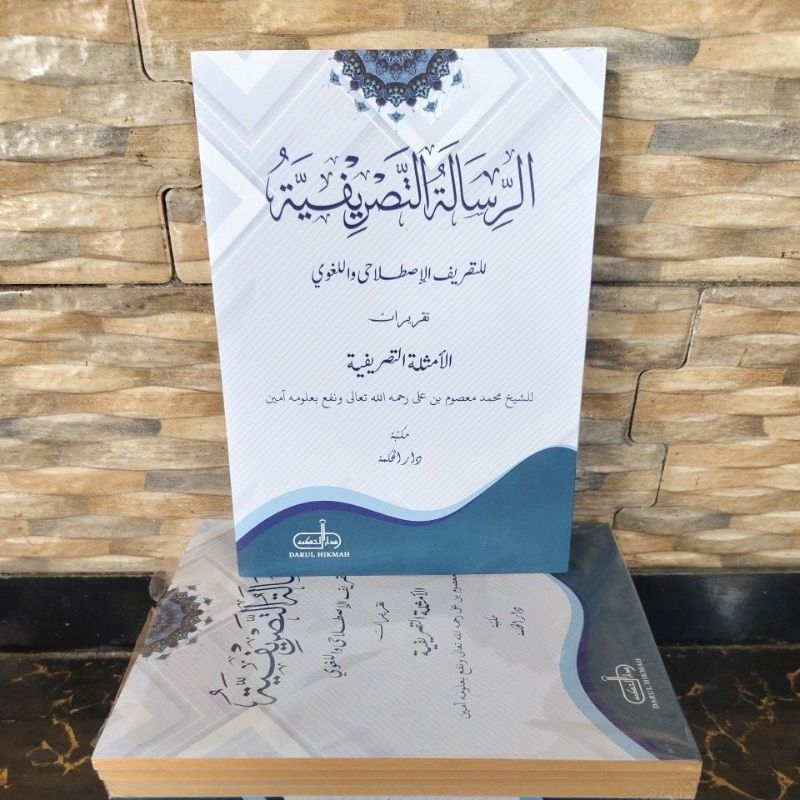 الرِّسَالَةُ التَّصْرِيْفِيَّةُ
للتصريف الإصطلاحى واللغوي
تقريرات
الأمثلة التصريفية
للشيخ محمد معصوم بن على رحمه الله تعالى ونفع بعلومه آمين
مكتبة
دار الحكمة
دار الحكمة
DARUL HIKMAH
الرِّسَالَةُ التَّصْرِيْفِيَّةُ
للتصريف الإصطلاحى واللغوي
تقريرات
الأمثلة التصريفية
معصوم بن على رحمه الله تعالى ونفع بعلومه آمين
مكتبة
دار الحكمة
DARUL HIKMAH